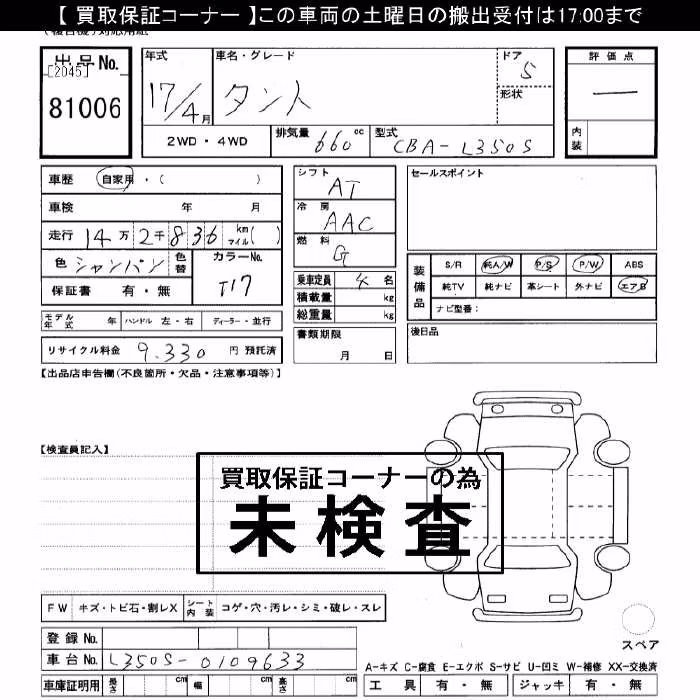 【 買取保証コーナー 】この車両の土曜日の搬出受付は17:00まで
出品No.
[2045]
81006
年式
17/4月
車名・グレード
タント
ドア
5
形状
評価点
―
内装
2WD ・ 4WD
排気量 660 cc
型式 CBA-L350S
車歴 自家用 ・ ( )
車検 年 月
走行 14万 2千 836 km マイル ( )
色 シャンパン 色替 カラーNo. T17
保証書 有 ・ 無
モデル年式 年 ハンドル 左 ・ 右 ディーラー ・ 並行
リサイクル料金 9.330 円 預託済
シフト AT
冷房 AAC
燃料 G
乗車定員 4 名
積載量 kg
総重量 kg
書類期限
月 日
セールスポイント
装備品
S/R 純A/W P/S P/W ABS
純TV 純ナビ 革シート 外ナビ エアB
ナビ型番：
後日品
【出品店申告欄(不良箇所・欠品・注意事項等)】
【検査員記入】
買取保証コーナーの為
未検査
FW キズ・トビ石・割レX シート内装 コゲ・穴・汚レ・シミ・破レ・スレ
登録No.
車台No. L350S-0109633
車庫証明用 長さ cm 幅 cm 高さ cm
スペア
A-キズ C-腐食 E-エクボ S-サビ U-凹ミ W-補修 XX-交換済
工具 有 ・ 無 ジャッキ 有 ・ 無